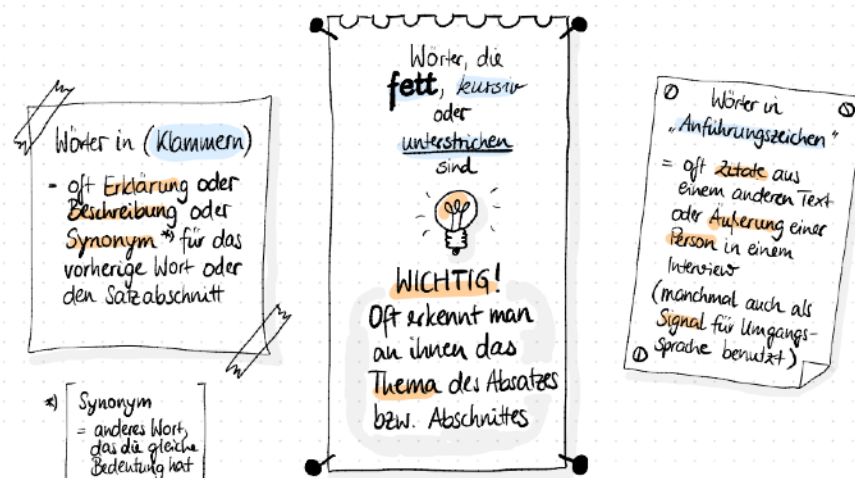 Wörter in (Klammern)
= oft Erklärung oder
Beschreibung oder
Synonym *) für das
vorherige Wort oder
den Satzabschnitt
*) Synonym
= anderes Wort,
das die gleiche
Bedeutung hat
Wörter, die
fett, kursiv
oder
unterstrichen
sind
WICHTIG!
Oft erkennt man
an ihnen das
Thema des Absatzes
bzw. Abschnittes
Wörter in
„Anführungszeichen"
= oft Zitate aus
einem anderen Text
oder Äußerung einer
Person in einem
Interview
(manchmal auch als
Signal für Umgangs-
sprache benutzt)